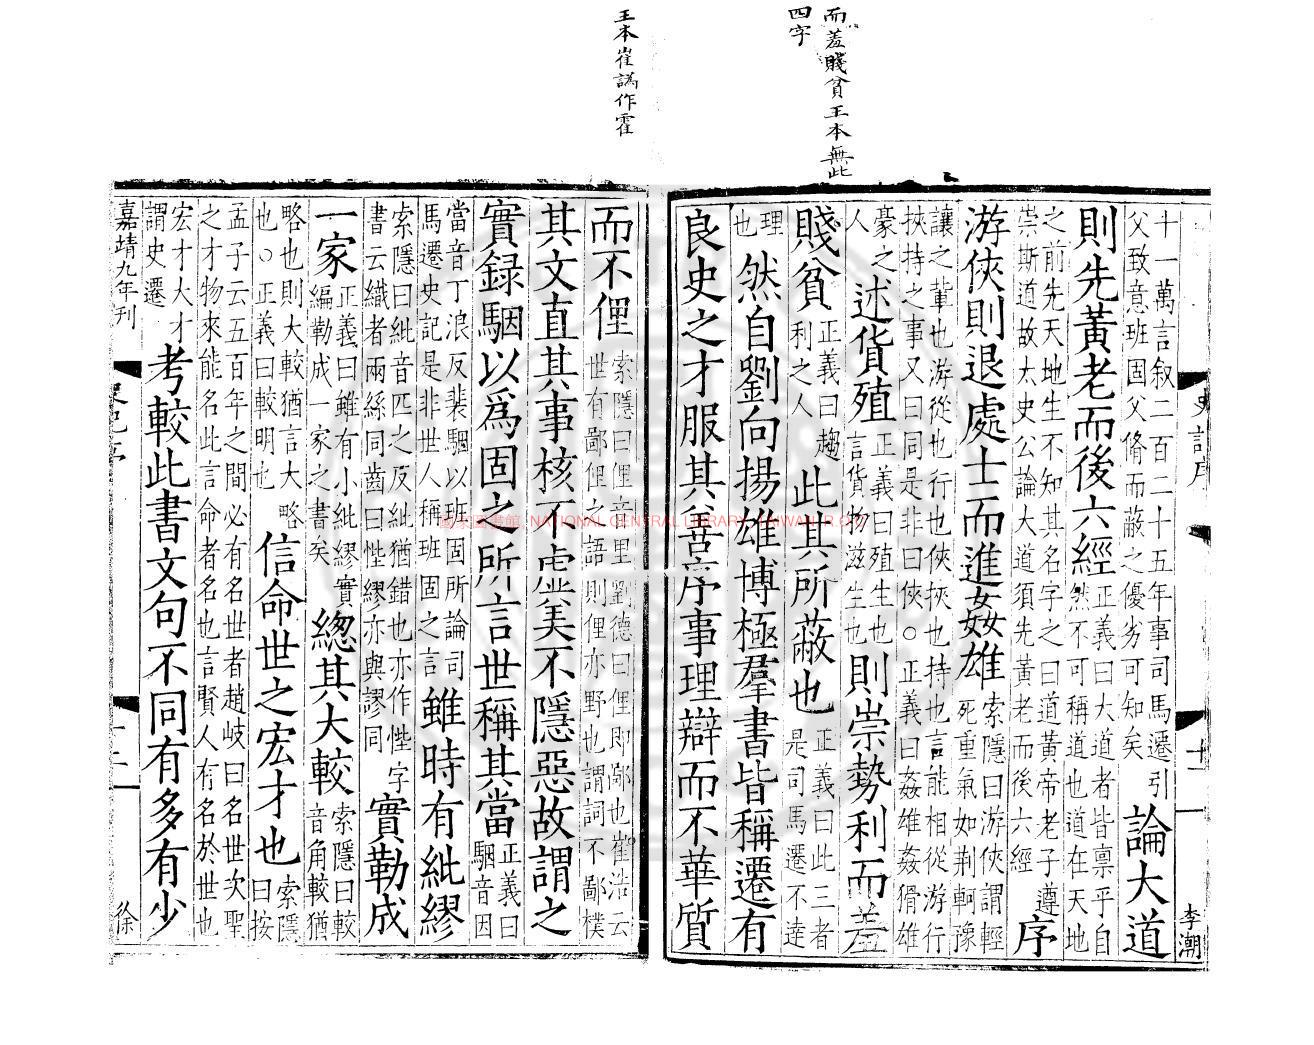 而羞賤貧王本無此
四字
王本崔譌作霍
史記序
十一
李潮
十一萬言叙二百二十五年事司馬遷引
父致意班固父脩而蔽之優劣可知矣
論大道
則先黃老而後六經
正義曰大道者皆禀乎自
然不可稱道也道在天地
之前先天地生不知其名字之曰道黃帝老子遵
崇斯道故太史公論大道須先黃老而後六經
序
游俠則退處士而進姦雄
索隱曰游俠謂輕
死重氣如荆軻豫
讓之輩也游從也行也俠挾也持也言能相從游行
挾持之事又曰同是非曰俠○正義曰姦雄姦猾雄
豪之
人
述貨殖
正義曰殖生也
言貨物滋生也
則崇勢利而羞
賤貧
正義曰趨
利之人
此其所蔽也
正義曰此三者
是司馬遷不達
理
也
然自劉向揚雄博極羣書皆稱遷有
良史之才服其善序事理辯而不華質
而不俚
索隱曰俚音里劉德曰俚即鄙也崔浩云
世有鄙俚之語則俚亦野也謂詞不鄙樸
其文直其事核不虛美不隱惡故謂之
實録駰以爲固之所言世稱其當
正義曰
駰音因
當音丁浪反裴駰以班固所論司
馬遷史記是非世人稱班固之言
雖時有紕繆
索隱曰紕音匹之反紕猶錯也亦作悂字
書云纖者兩絲同齒曰悂繆亦與謬同
實勒成
一家
正義曰雖有小紕繆實
編勒成一家之書矣
總其大較
索隱曰較
音角較猶
略也則大較猶言大略
也○正義曰較明也
信命世之宏才也
索隱
曰按
孟子云五百年之間必有名世者趙岐曰名世次聖
之才物來能名此言命者名也言賢人有名於世也
宏才大才
謂史遷
考較此書文句不同有多有少
嘉靖九年刊
徐
國家圖書館 NATIONAL CENTRAL LIBRARY, TAIWAN R.O.C